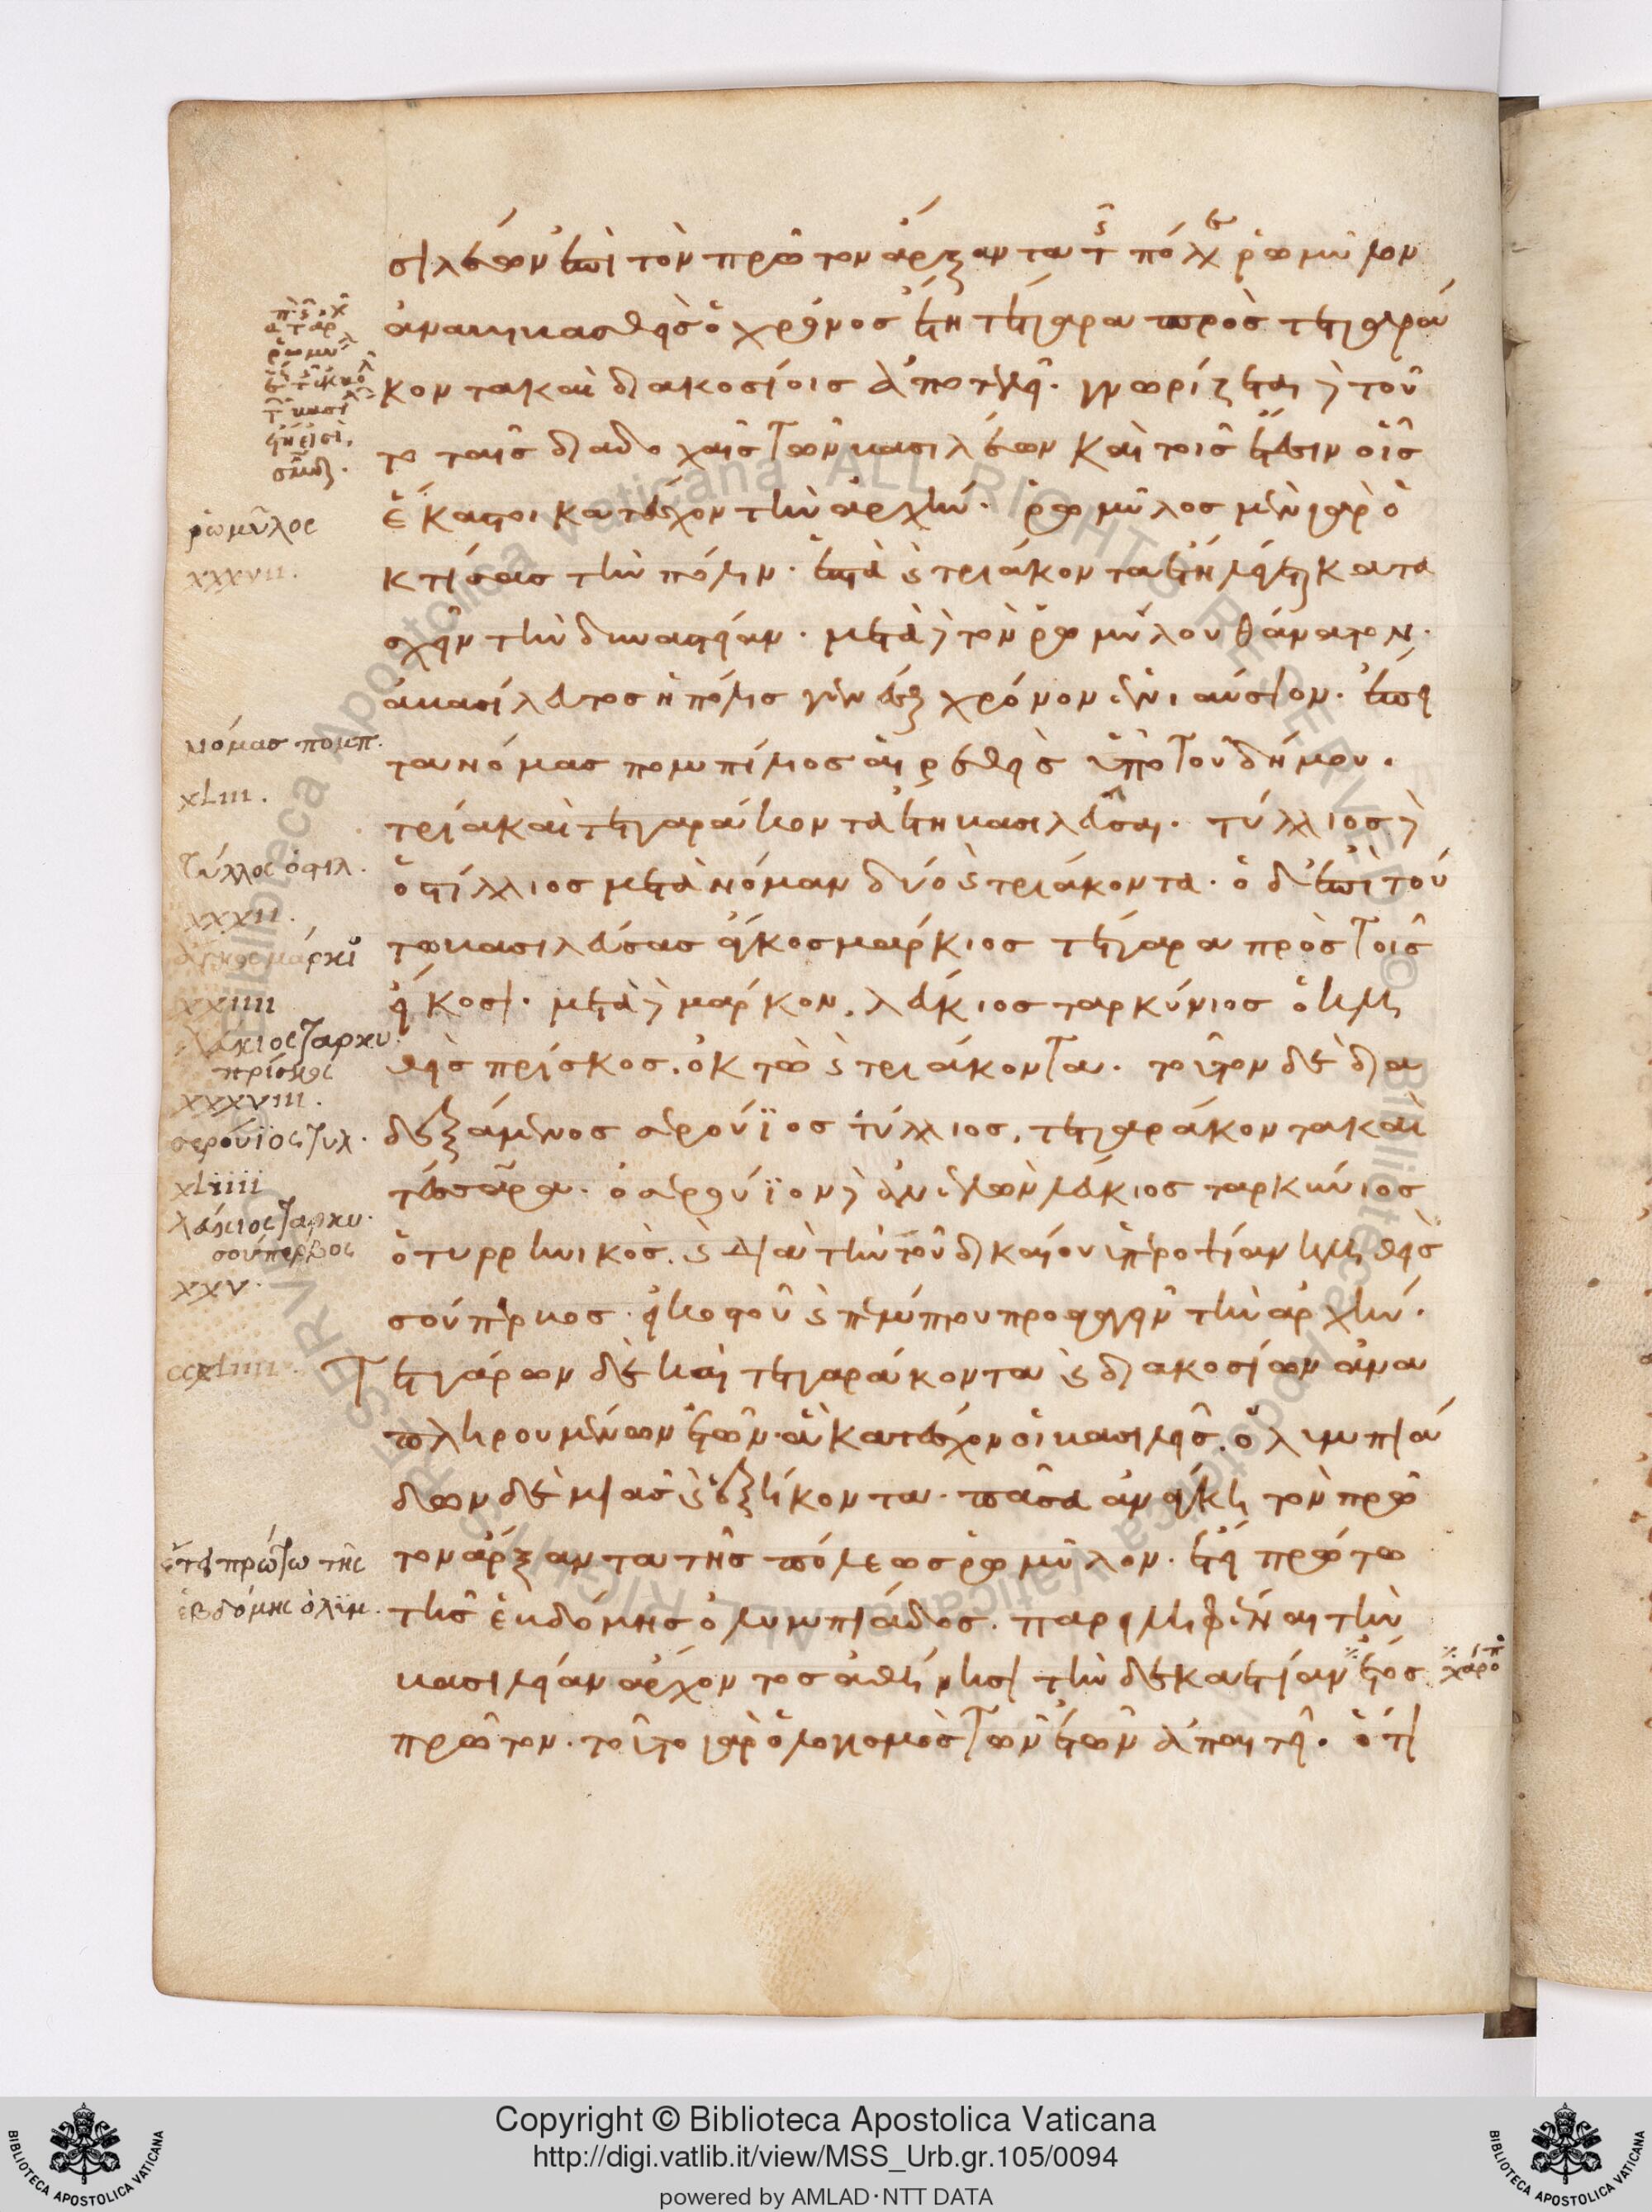 σιλέων ἐπὶ τὸν πρῶτον ἄρξαντα τῆς πόλεως ῥωμύλον
ἀναβιβασθεὶς ὁ χρόνος ἔτη τέτταρα πρὸς τετταρά
κοντα καὶ διακοσίοις ἀποτελεῖ. γνωρίζεται δὲ τοῦ
το ταῖς διαδοχαῖς τῶν βασιλέων καὶ τοῖς ἔτεσιν οἷς
ἕκαστοι κατέσχον τὴν ἀρχήν. ῥωμύλος μὲν γὰρ ὁ
κτίσας τὴν πόλιν. ἑπτὰ καὶ τριάκοντα ἔτη λέγεται κατα
σχεῖν τὴν δυναστείαν. μετὰ δὲ τὸν ῥωμύλου θάνατον.
ἀβασίλευτος ἡ πόλις γενέσθαι χρόνον ἐνιαύσιον. ἔπει
τα νόμας πομπίλιος αἱρεθεὶς ὑπὸ τοῦ δήμου.
τρία καὶ τετταράκοντα ἔτη βασιλεῦσαι. τύλλιος δὲ
ὁστίλλιος μετὰ νόμαν δύο καὶ τριάκοντα. ὁ δ' ἐπὶ τού
τω βασιλεύσας ἄγκος μάρκιος τέτταρα πρὸς τοῖς
εἴκοσι. μετὰ δὲ μάρκον, λεύκιος ταρκύνιος ὁ κλη
θεὶς πρίσκος. ὀκτὼ καὶ τριάκοντα. τοῦτον δὲ δια
δεξάμενος σερούϊος τύλλιος, τετταράκοντα καὶ
τέσσαρα. ὁ σερούϊον δὲ ἀνελὼν λεύκιος ταρκύνιος
ὁ τυρρηνικὸς. καὶ διὰ τὴν τοῦ δικαίου ὑπεροψίαν κληθεὶς
σούπερβος. εἰκοστοῦ καὶ πέμπτου προαγαγεῖν τὴν ἀρχήν.
Τεττάρων δὲ καὶ τετταράκοντα καὶ διακοσίων ἀνα
πληρουμένων ἐτῶν. ἃ κατέσχον οἱ βασιλεῖς. ὀλυμπιά
δων δὲ μιᾶς καὶ ἑξήκοντα. πᾶσα ἀνάγκη τὸν πρῶ
τον ἄρξαντα τῆς πόλεως ῥωμύλον. ἔτει πρώτω
τῆς ἑβδόμης ὀλυμπιάδος. παρειληφέναι τὴν
βασιλείαν ἄρχοντος ἀθήνησι τὴν δεκαετίαν ἔτος
πρῶτον. τοῦτο γὰρ ὁ λογισμὸς τῶν ἐτῶν ἀπαιτεῖ. ὅτι
ῥωμύλος
XXXVII.
νόμας πομπ.
XLIII.
τύλλος ὁστιλ.
XXXII.
ἄγκος μάρκι
XXIIII
λεύκιος ταρκυ.
πρίσκος
XXXVIII.
σερούϊος τυλ.
XLIIII
λεύκιος ταρκυ.
σούπερβος
XXV.
CCXLIIII.
ἔτει πρώτω τῆς
ἑβδόμης ὀλυμ.
χάροπ
Copyright © Biblioteca Apostolica Vaticana
http://digi.vatlib.it/view/MSS_Urb.gr.105/0094
powered by AMLAD·NTT DATA
BIBLIOTECA APOSTOLICA VATICANA
BIBLIOTECA APOSTOLICA VATICANA